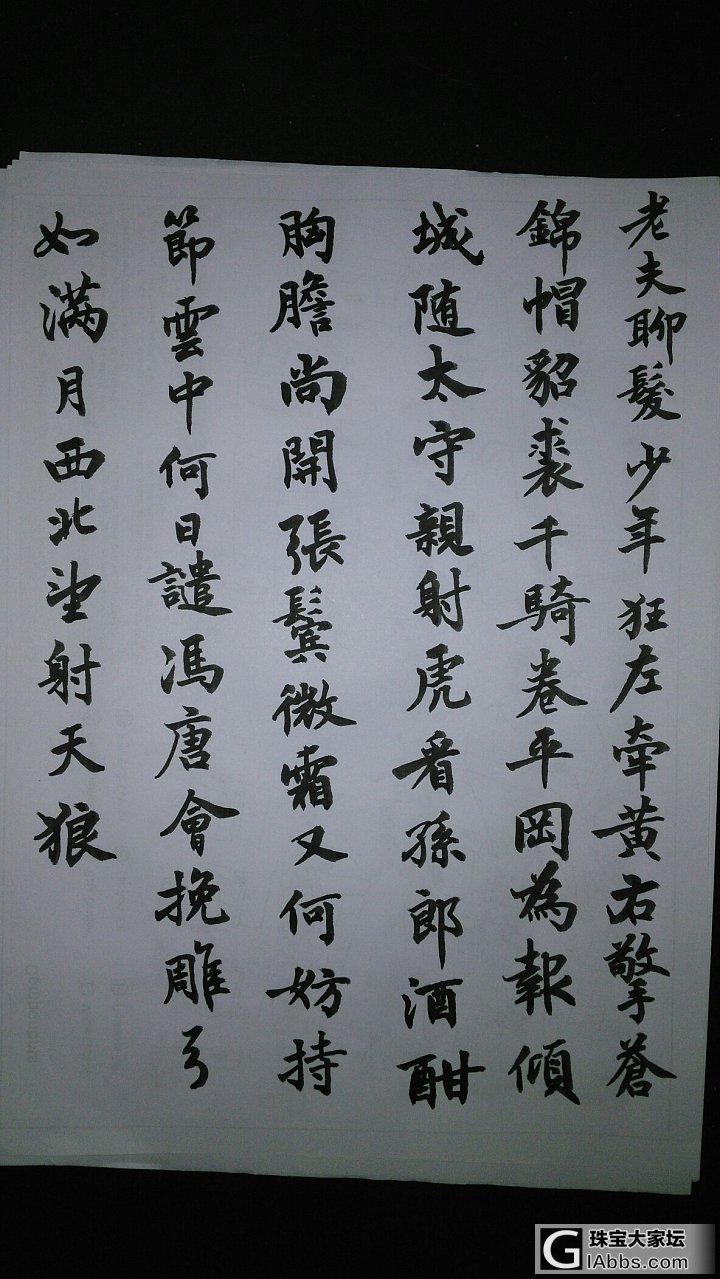 老夫聊髮少年狂左牽黄右擎蒼
錦帽貂裘千騎卷平岡為報傾
城随太守親射虎看孫郎酒酣
胸膽尚開張鬢微霜又何妨持
節雲中何日譴馮唐會挽雕弓
如滿月西北望射天狼
珠宝大家坛
GIAbbs.com